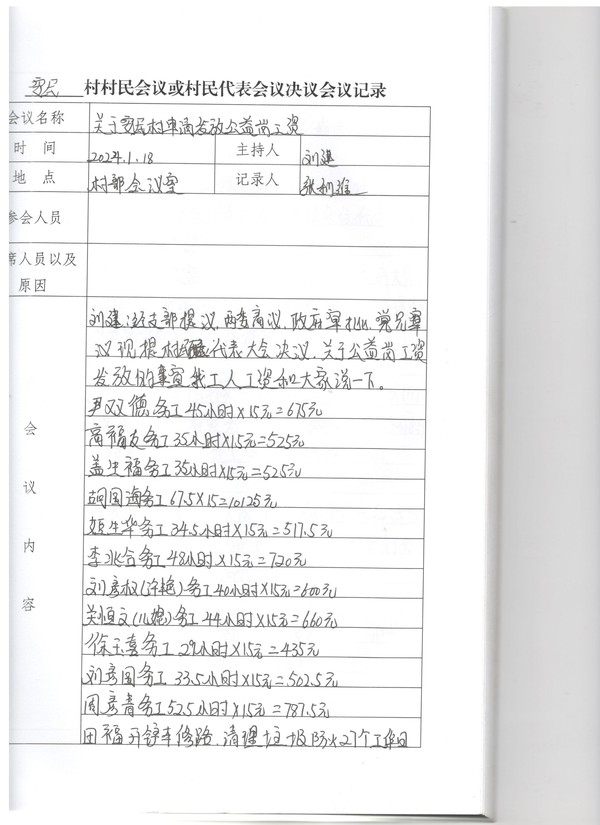 民 村村民会议或村民代表会议决议会议记录
会议名称 关于民村申请发放公益岗工资
时 间 2024.1.18 主持人 刘建
地 点 村部会议室 记录人 张利
参会人员
席人员以及
原因
刘建:经支部提议,两委商议,政府审批,党员审
议现提村民代表大会决议,关于公益岗工资
发放的事宜找工人工资和大家说一下。
尹双德务工45小时×15元=675元
高福友务工35小时×15元=525元
盖生福务工35小时×15元=525元
胡国海务工67.5×15=1012.5元
姬生华务工34.5小时×15元=517.5元
会 李兆合务工48小时×15元=720元
议 刘彦权(许艳)务工40小时×15元=600元
内 关恒文(儿媳)务工44小时×15元=660元
容 徐玉喜务工29小时×15元=435元
刘彦国务工33.5小时×15元=502.5元
周彦青务工52.5小时×15元=787.5元
田福开铲车修路、清理垃圾防火27个工作日